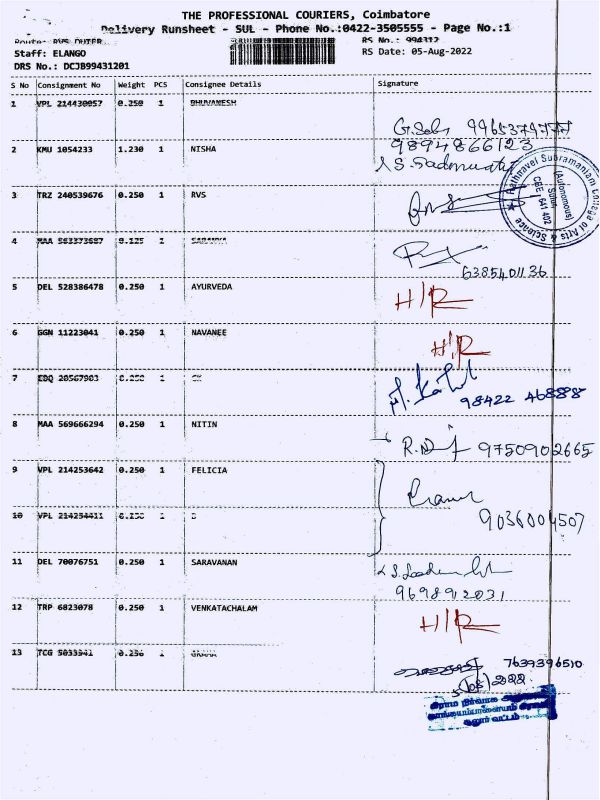 THE PROFESSIONAL COURIERS, Coimbatore
Delivery Runsheet - SUL - Phone No.:0422-3505555 - Page No.:1
RS No.: 994312
Staff: ELANGO RS Date: 05-Aug-2022
DRS No.: DCJB99431201
S No Consignment No Weight PCS Consignee Details Signature
1 VPL 214430057 0.250 1 BHUVANESH
9965374777
2 KMU 1054233 1.230 1 NISHA 9894866123
3 TRZ 240539676 0.250 1 RVS
Rathnavel Subramaniam College of Arts & Science
(Autonomous)
Sulur
CBE - 641 402
4 MAA 563373687 0.125 1
6385401136
5 DEL 528386478 0.250 1 AYURVEDA H/R
6 GGN 11223041 0.250 1 NAVANEE H/R
7 EDQ 20567903 0.250 1
98422 468888
8 MAA 569666294 0.250 1 NITIN 9750902665
9 VPL 214253642 0.250 1 FELICIA
10 VPL 214254411 0.250 1 9036004507
11 DEL 70076751 0.250 1 SARAVANAN
9698912031
12 TRP 6823078 0.250 1 VENKATACHALAM H/R
13 TCG 5033941 0.250 1 7639396510
5/08/2022
கிராம நிர்வாக